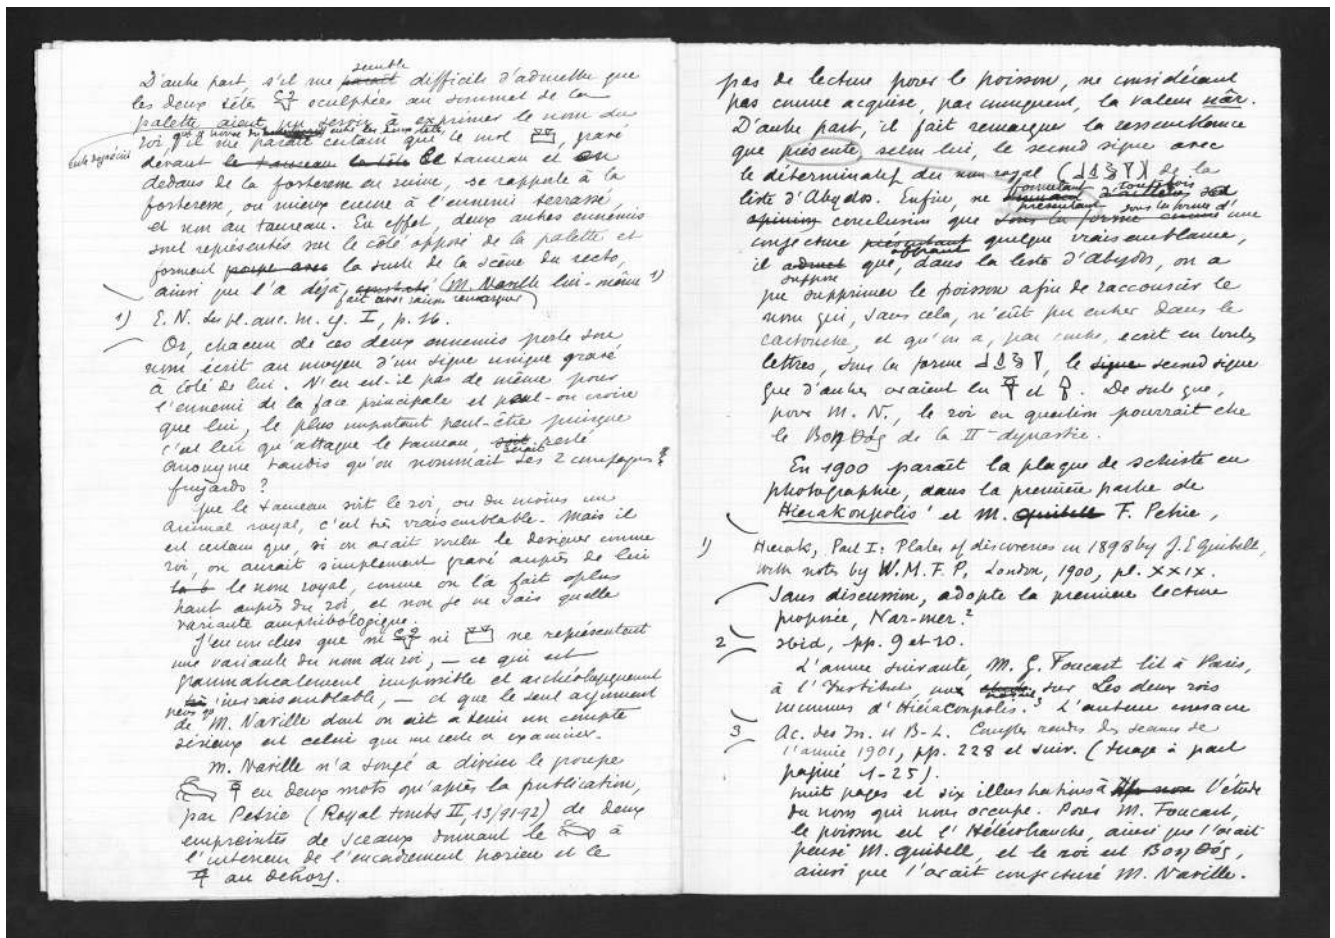 semble
D'autre part, s'il me paraît difficile d'admettre que
les deux têtes sculptées au sommet de la
palette aient pu servir à exprimer le nom du
que le nom du entre les deux têtes,
roi, il me paraît certain que le mot , gravé
devant le taureau la tête le taureau et en
dedans de la forteresse en ruine, se rapporte à la
forteresse, ou mieux encore à l'ennemi terrassé,
et non au taureau. En effet, deux autres ennemis
sont représentés sur le côté opposé de la palette et
forment avec la suite de la scène du recto,
ainsi que l'a déjà (M. Naville lui-même 1)
fait avec raison remarquer)
1) E. N. les pl. anc. m. ég. I, p. 16.
Or, chacun de ces deux ennemis porte son
nom écrit au moyen d'un signe unique gravé
à côté de lui. N'en est-il pas de même pour
l'ennemi de la face principale et peut-on croire
que lui, le plus important peut-être puisque
c'est lui qu'attaque le taureau, soit resté
serait
anonyme tandis qu'on nommait ses 2 compagnons
fuyards ?
Que le taureau soit le roi, ou du moins un
animal royal, c'est très vraisemblable. Mais il
est certain que, si on avait voulu le désigner comme
roi, on aurait simplement gravé auprès de lui
le nom royal, comme on l'a fait plus
haut auprès du roi, et non je ne sais quelle
variante amphibologique.
J'en conclus que ni ni ne représentent
une variante du nom du roi, — ce qui est
grammaticalement impossible et archéologiquement
très invraisemblable, — et que le seul argument
de M. Naville dont on ait à tenir un compte
sérieux est celui qui me reste à examiner.
M. Naville n'a songé à diviser le groupe
en deux mots qu'après la publication,
par Petrie (Royal tombs II, 13/91-92) de deux
empreintes de sceaux donnant le à
l'intérieur de l'encadrement horien et le
au dehors.
pas de lecture pour le poisson, ne considérant
pas comme acquise, par conséquent, la valeur nâr.
D'autre part, il fait remarquer la ressemblance
que présente, selon lui, le second signe avec
le déterminatif du nom royal ( ) de la
formulant d'ailleurs toutefois
liste d'Abydos. Enfin, ne donnant son
présentant sous la forme d'
opinion conclusion que sous la forme comme une
conjecture présentant quelque vraisemblance,
offrant
il admet que, dans la liste d'Abydos, on a
suppose
pu supprimer le poisson afin de raccourcir le
nom qui, sans cela, n'eût pu entrer dans le
cartouche, et qu'on a, par contre, écrit en toutes
lettres, sous la forme , le signe second signe
que d'autres avaient lu et . De sorte que,
pour M. N., le roi en question pourrait être
le Βοηθός de la IIe dynastie.
En 1900 paraît la plaque de schiste en
photographie, dans la première partie de
Hierakonpolis 1 et M. Quibell F. Petrie,
1) Hierak., Part I: Plates of discoveries in 1898 by J. E Quibell,
with notes by W. M. F. P. London, 1900, pl. XXIX.
sans discussion, adopte la première lecture
proposée, Nar-mer.2
2 Ibid, pp. 9 et 10.
L'année suivante, M. G. Foucart lit à Paris,
à l'Institut, une étude sur Les deux rois
inconnus d'Hiéraconpolis.3 L'auteur consacre
3 Ac. des In. et B-L. Comptes rendus des séances de
l'année 1901, pp. 228 et suiv. (tirage à part
paginé 1-25).
huit pages et six illustrations à l'étude
du nom qui nous occupe. Pour M. Foucart,
le poisson est l'Hétérobranche, ainsi que l'avait
pensé M. Quibell, et le roi est Βοηθός,
ainsi que l'avait conjecturé M. Naville.